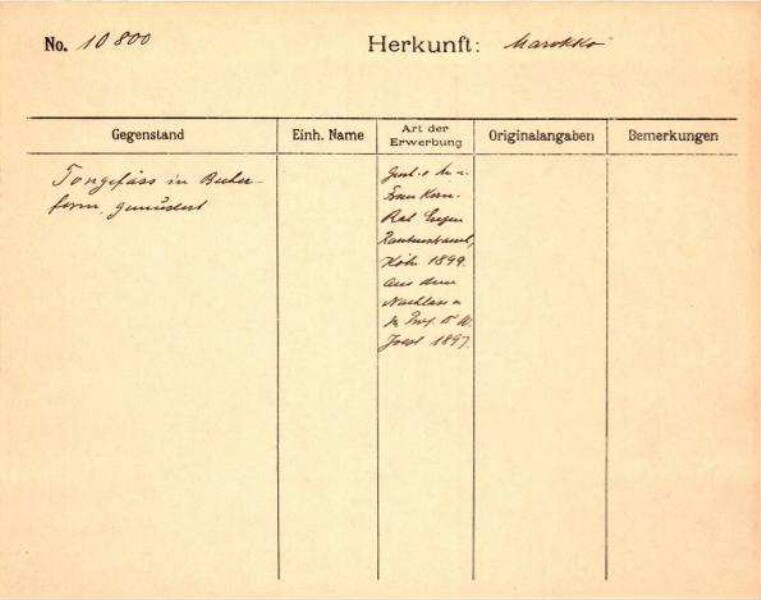 No. 10800 Herkunft: Marokko
Gegenstand Einh. Name Art der Erwerbung Originalangaben Bemerkungen
Tongefäss in Becher-
form, gemustert
Frau Kom.
Rat Eugen
Rautenstrauch,
Köln 1899.
aus dem
Nachlass
Prof. Dr W.
Joest 1897.